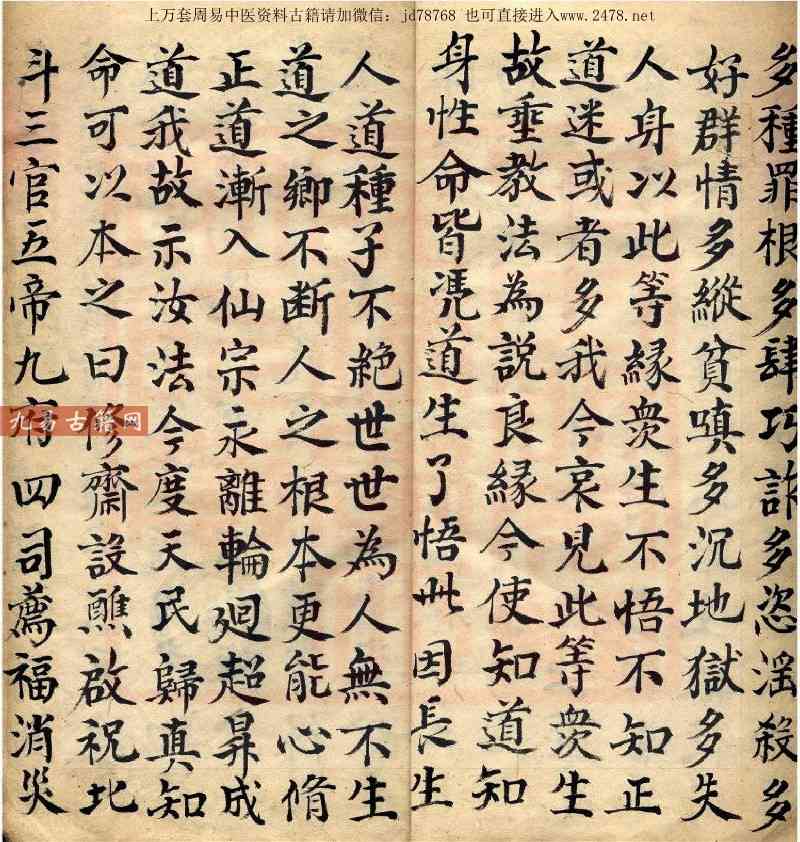 上万套周易中医资料古籍请加微信：jd78768 也可直接进入www.2478.net
多種罪根多肆巧詐多恣淫殺多
好群情多縱貧嗔多沉地獄多失
人身以此等緣衆生不悟不知正
道迷或者多我今哀見此等衆生
故垂教法為説良緣今使知道知
身性命皆凭道生了悟此因長生
人道種子不絶世世為人無不生
道之鄉不断人之根本更能心脩
正道漸入仙宗永離輪廻超昇成
道我故示汝法今度天民歸真知
命可以本之曰修齋設醮啟祝北
斗三官五帝九府四司薦福消災
九易古籍网